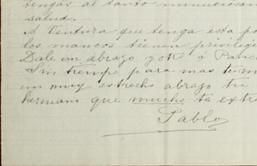 tengas al tanto minuciosam
salud.
A Ventura que tenga esta po
los mancos tienen privilegi
Dale un abrazo y otro á Panc
Sin tiempo para mas termi
un muy estrecho abrazo tu
hermano que mucho te extra
Pablo